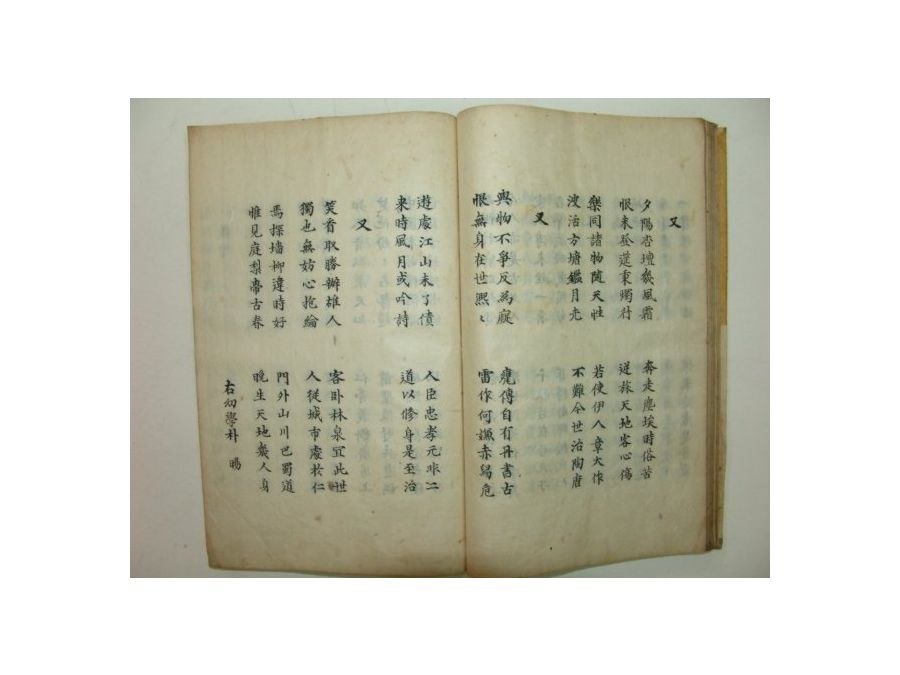 又
夕陽杏壇幾風霜 奔走塵埃時俗苦
恨未登筵秉燭行 逆旅天地客心傷
樂同諸物隨天性 若使伊人章大作
波活方塘鑑月光 不難今世治陶唐
又
與物不爭反為 傳自有丹書古
恨無身在世熙〻 雷作何 赤舃危
又
遊處江山未了債 人臣忠孝元非二
来時風月或吟詩 道以修身是至治
笑看取勝辦雄人 客卧林泉冝此世
獨也無妨心抱綸 人從城市處於仁
焉探墻柳違時好 門外山川巴蜀道
惟見庭梨帶古春 晚生天地幾人身
右幼學朴 暘